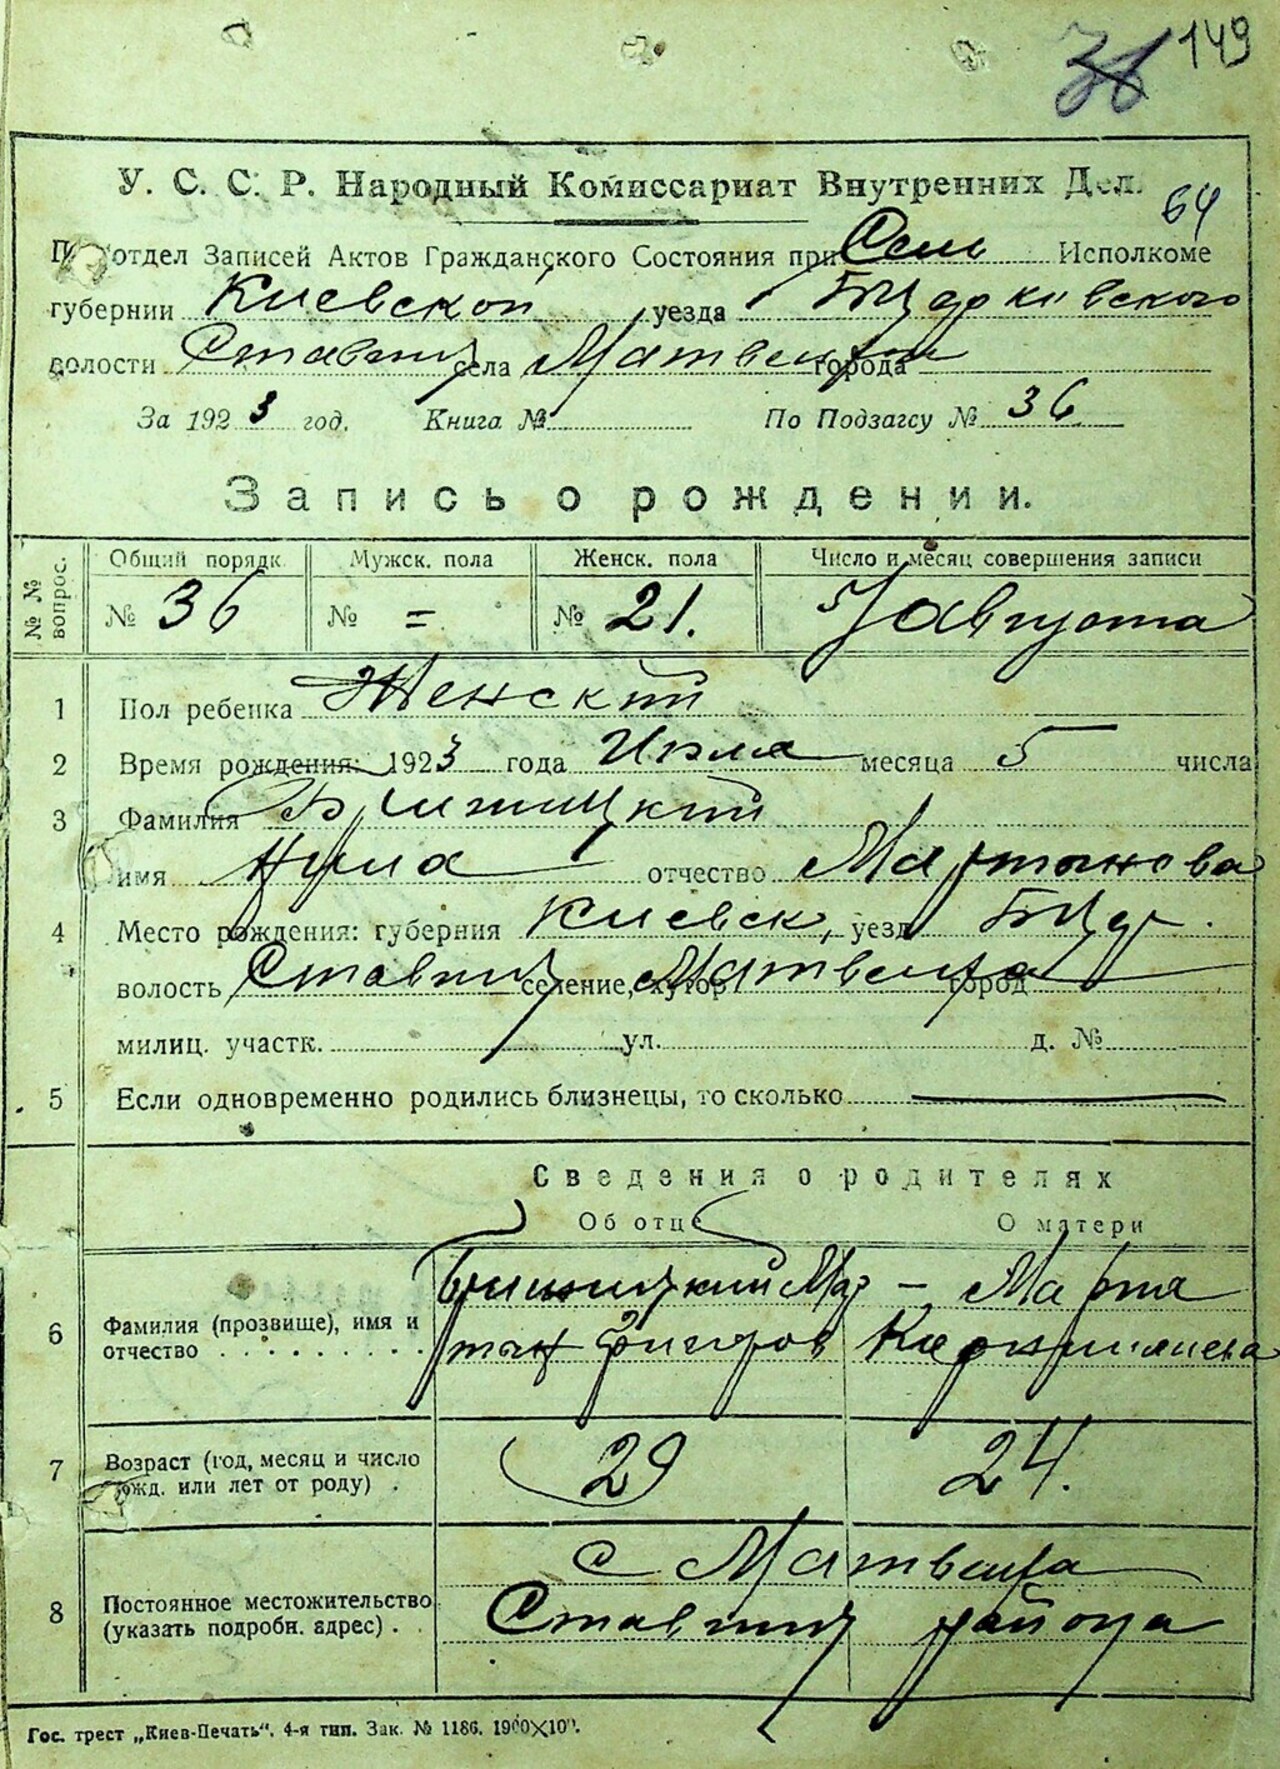 149
У. С. С. Р. Народный Комиссариат Внутренних Дел.
64
Подотдел Записей Актов Гражданского Состояния при Сель Исполкоме
губернии Киевской уезда БЦерковского
волости Ставищ села Матвеиха города
За 1923 год. Книга № По Подзагсу № 36
Запись о рождении.
№ № вопрос. Общий порядк. Мужск. пола Женск. пола Число и месяц совершения записи
№ 36 № = № 21. 5/ августа
1 Пол ребенка Женский
2 Время рождения: 1923 года Июля месяца 5 числа
3 Фамилия
имя отчество Мартынова
4 Место рождения: губерния Киевск, уезд БЦер.
волость Ставищ селение, хутор Матвеиха город
милиц. участк. ул. д. №
5 Если одновременно родились близнецы, то сколько
Сведения о родителях
Об отце О матери
6 Фамилия (прозвище), имя и отчество Мар- Мария
тын
7 Возраст (год, месяц и число рожд. или лет от роду) . 29 24.
8 Постоянное местожительство (указать подробн. адрес) . с Матвеиха
Ставищ района
Гос. трест „Киев-Печать“. 4-я тип. Зак. № 1186.